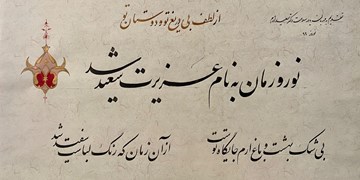 از لطف بی دریغ تو و دوستان تو
نوروزمان به نام عزیزت سعید شد
بی شک بهشت و باغ ارم جایگاه توست
از آن زمان که رنگ لباست سفید شد